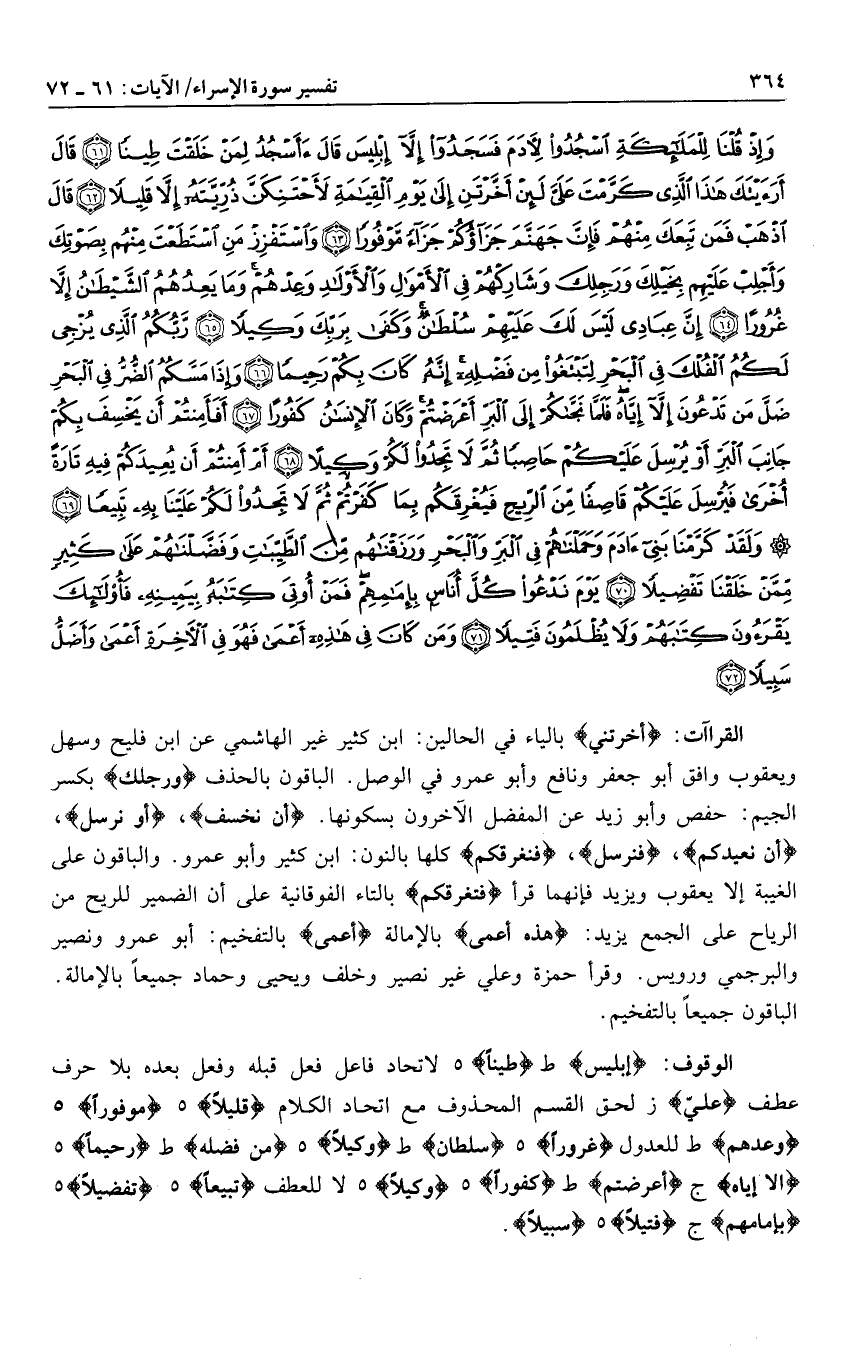 ٣٦٤
تفسير سورة الإسراء/ الآيات: ٦١ - ٧٢
وَإِذْ قُلْنَا لِلْمَلَٰٓئِكَةِ ٱسْجُدُوا۟ لِءَادَمَ فَسَجَدُوٓا۟ إِلَّآ إِبْلِيسَ قَالَ ءَأَسْجُدُ لِمَنْ خَلَقْتَ طِينًا ٦١ قَالَ
أَرَءَيْتَكَ هَٰذَا ٱلَّذِى كَرَّمْتَ عَلَىَّ لَئِنْ أَخَّرْتَنِ إِلَىٰ يَوْمِ ٱلْقِيَٰمَةِ لَأَحْتَنِكَنَّ ذُرِّيَّتَهُۥٓ إِلَّا قَلِيلًا ٦٢ قَالَ
ٱذْهَبْ فَمَن تَبِعَكَ مِنْهُمْ فَإِنَّ جَهَنَّمَ جَزَآؤُكُمْ جَزَآءً مَّوْفُورًا ٦٣ وَٱسْتَفْزِزْ مَنِ ٱسْتَطَعْتَ مِنْهُم بِصَوْتِكَ
وَأَجْلِبْ عَلَيْهِم بِخَيْلِكَ وَرَجِلِكَ وَشَارِكْهُمْ فِى ٱلْأَمْوَٰلِ وَٱلْأَوْلَٰدِ وَعِدْهُمْ ۚ وَمَا يَعِدُهُمُ ٱلشَّيْطَٰنُ إِلَّا
غُرُورًا ٦٤ إِنَّ عِبَادِى لَيْسَ لَكَ عَلَيْهِمْ سُلْطَٰنٌ ۚ وَكَفَىٰ بِرَبِّكَ وَكِيلًا ٦٥ رَّبُّكُمُ ٱلَّذِى يُزْجِى
لَكُمُ ٱلْفُلْكَ فِى ٱلْبَحْرِ لِتَبْتَغُوا۟ مِن فَضْلِهِۦٓ ۚ إِنَّهُۥ كَانَ بِكُمْ رَحِيمًا ٦٦ وَإِذَا مَسَّكُمُ ٱلضُّرُّ فِى ٱلْبَحْرِ
ضَلَّ مَن تَدْعُونَ إِلَّآ إِيَّاهُ ۖ فَلَمَّا نَجَّىٰكُمْ إِلَى ٱلْبَرِّ أَعْرَضْتُمْ ۚ وَكَانَ ٱلْإِنسَٰنُ كَفُورًا ٦٧ أَفَأَمِنتُمْ أَن يَخْسِفَ بِكُمْ
جَانِبَ ٱلْبَرِّ أَوْ يُرْسِلَ عَلَيْكُمْ حَاصِبًا ثُمَّ لَا تَجِدُوا۟ لَكُمْ وَكِيلًا ٦٨ أَمْ أَمِنتُمْ أَن يُعِيدَكُمْ فِيهِ تَارَةً
أُخْرَىٰ فَيُرْسِلَ عَلَيْكُمْ قَاصِفًا مِّنَ ٱلرِّيحِ فَيُغْرِقَكُم بِمَا كَفَرْتُمْ ۙ ثُمَّ لَا تَجِدُوا۟ لَكُمْ عَلَيْنَا بِهِۦ تَبِيعًا ٦٩
۞ وَلَقَدْ كَرَّمْنَا بَنِىٓ ءَادَمَ وَحَمَلْنَٰهُمْ فِى ٱلْبَرِّ وَٱلْبَحْرِ وَرَزَقْنَٰهُم مِّنَ ٱلطَّيِّبَٰتِ وَفَضَّلْنَٰهُمْ عَلَىٰ كَثِيرٍ
مِّمَّنْ خَلَقْنَا تَفْضِيلًا ٧٠ يَوْمَ نَدْعُوا۟ كُلَّ أُنَاسٍۭ بِإِمَٰمِهِمْ ۖ فَمَنْ أُوتِىَ كِتَٰبَهُۥ بِيَمِينِهِۦ فَأُو۟لَٰٓئِكَ
يَقْرَءُونَ كِتَٰبَهُمْ وَلَا يُظْلَمُونَ فَتِيلًا ٧١ وَمَن كَانَ فِى هَٰذِهِۦٓ أَعْمَىٰ فَهُوَ فِى ٱلْءَاخِرَةِ أَعْمَىٰ وَأَضَلُّ
سَبِيلًا ٧٢
القراآت: ﴿أخرتني﴾ بالياء في الحالين: ابن كثير غير الهاشمي عن ابن فليح وسهل
ويعقوب وافق أبو جعفر ونافع وأبو عمرو في الوصل. الباقون بالحذف ﴿ورجلك﴾ بكسر
الجيم: حفص وأبو زيد عن المفضل الآخرون بسكونها. ﴿أن نخسف﴾، ﴿أو نرسل﴾،
﴿أن نعيدكم﴾، ﴿فنرسل﴾، ﴿فنغرقكم﴾ كلها بالنون: ابن كثير وأبو عمرو. والباقون على
الغيبة إلا يعقوب ويزيد فإنهما قرأ ﴿فتغرقكم﴾ بالتاء الفوقانية على أن الضمير للريح من
الرياح على الجمع يزيد: ﴿هذه أعمى﴾ بالإمالة ﴿أعمى﴾ بالتفخيم: أبو عمرو ونصير
والبرجمي ورويس. وقرأ حمزة وعلي غير نصير وخلف ويحيى وحماد جميعاً بالإمالة.
الباقون جميعاً بالتفخيم.
الوقوف: ﴿إبليس﴾ ط ﴿طيناً﴾ ٥ لاتحاد فاعل فعل قبله وفعل بعده بلا حرف
عطف ﴿عليّ﴾ ز لحق القسم المحذوف مع اتحاد الكلام ﴿قليلاً﴾ ٥ ﴿موفوراً﴾ ٥
﴿وعدهم﴾ ط للعدول ﴿غروراً﴾ ٥ ﴿سلطان﴾ ط ﴿وكيلاً﴾ ٥ ﴿من فضله﴾ ط ﴿رحيماً﴾ ٥
﴿الا إياه﴾ ج ﴿أعرضتم﴾ ط ﴿كفوراً﴾ ٥ ﴿وكيلاً﴾ ٥ لا للعطف ﴿تبيعاً﴾ ٥ ﴿تفضيلاً﴾ ٥
﴿بإمامهم﴾ ج ﴿فتيلاً﴾ ٥ ﴿سبيلاً﴾.